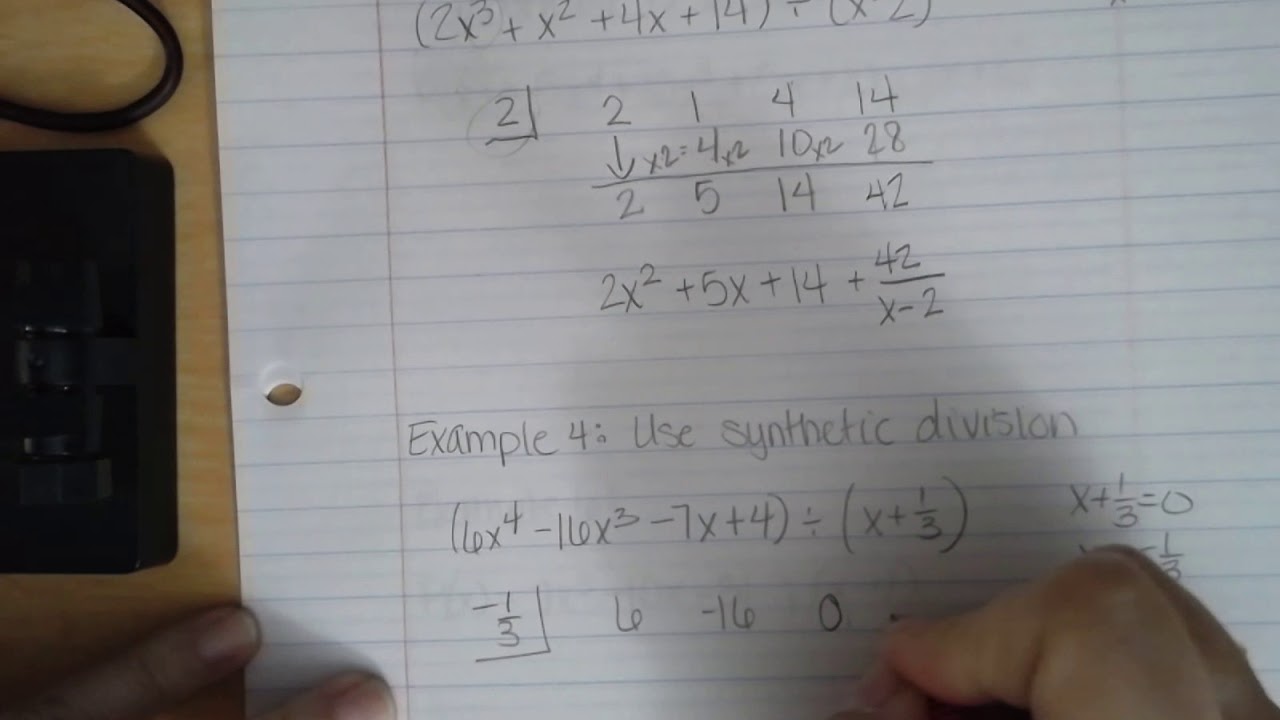 (2x³ + x² + 4x + 14) ÷ (x-2)
2 2 1 4 14
↓ x2 = 4 x2 10 x2 28
2 5 14 42
2x² + 5x + 14 + 42/(x-2)
Example 4: Use synthetic division
(6x⁴ - 16x³ - 7x + 4) ÷ (x + 1/3)
x + 1/3 = 0
-1/3
-1/3 6 -16 0 -